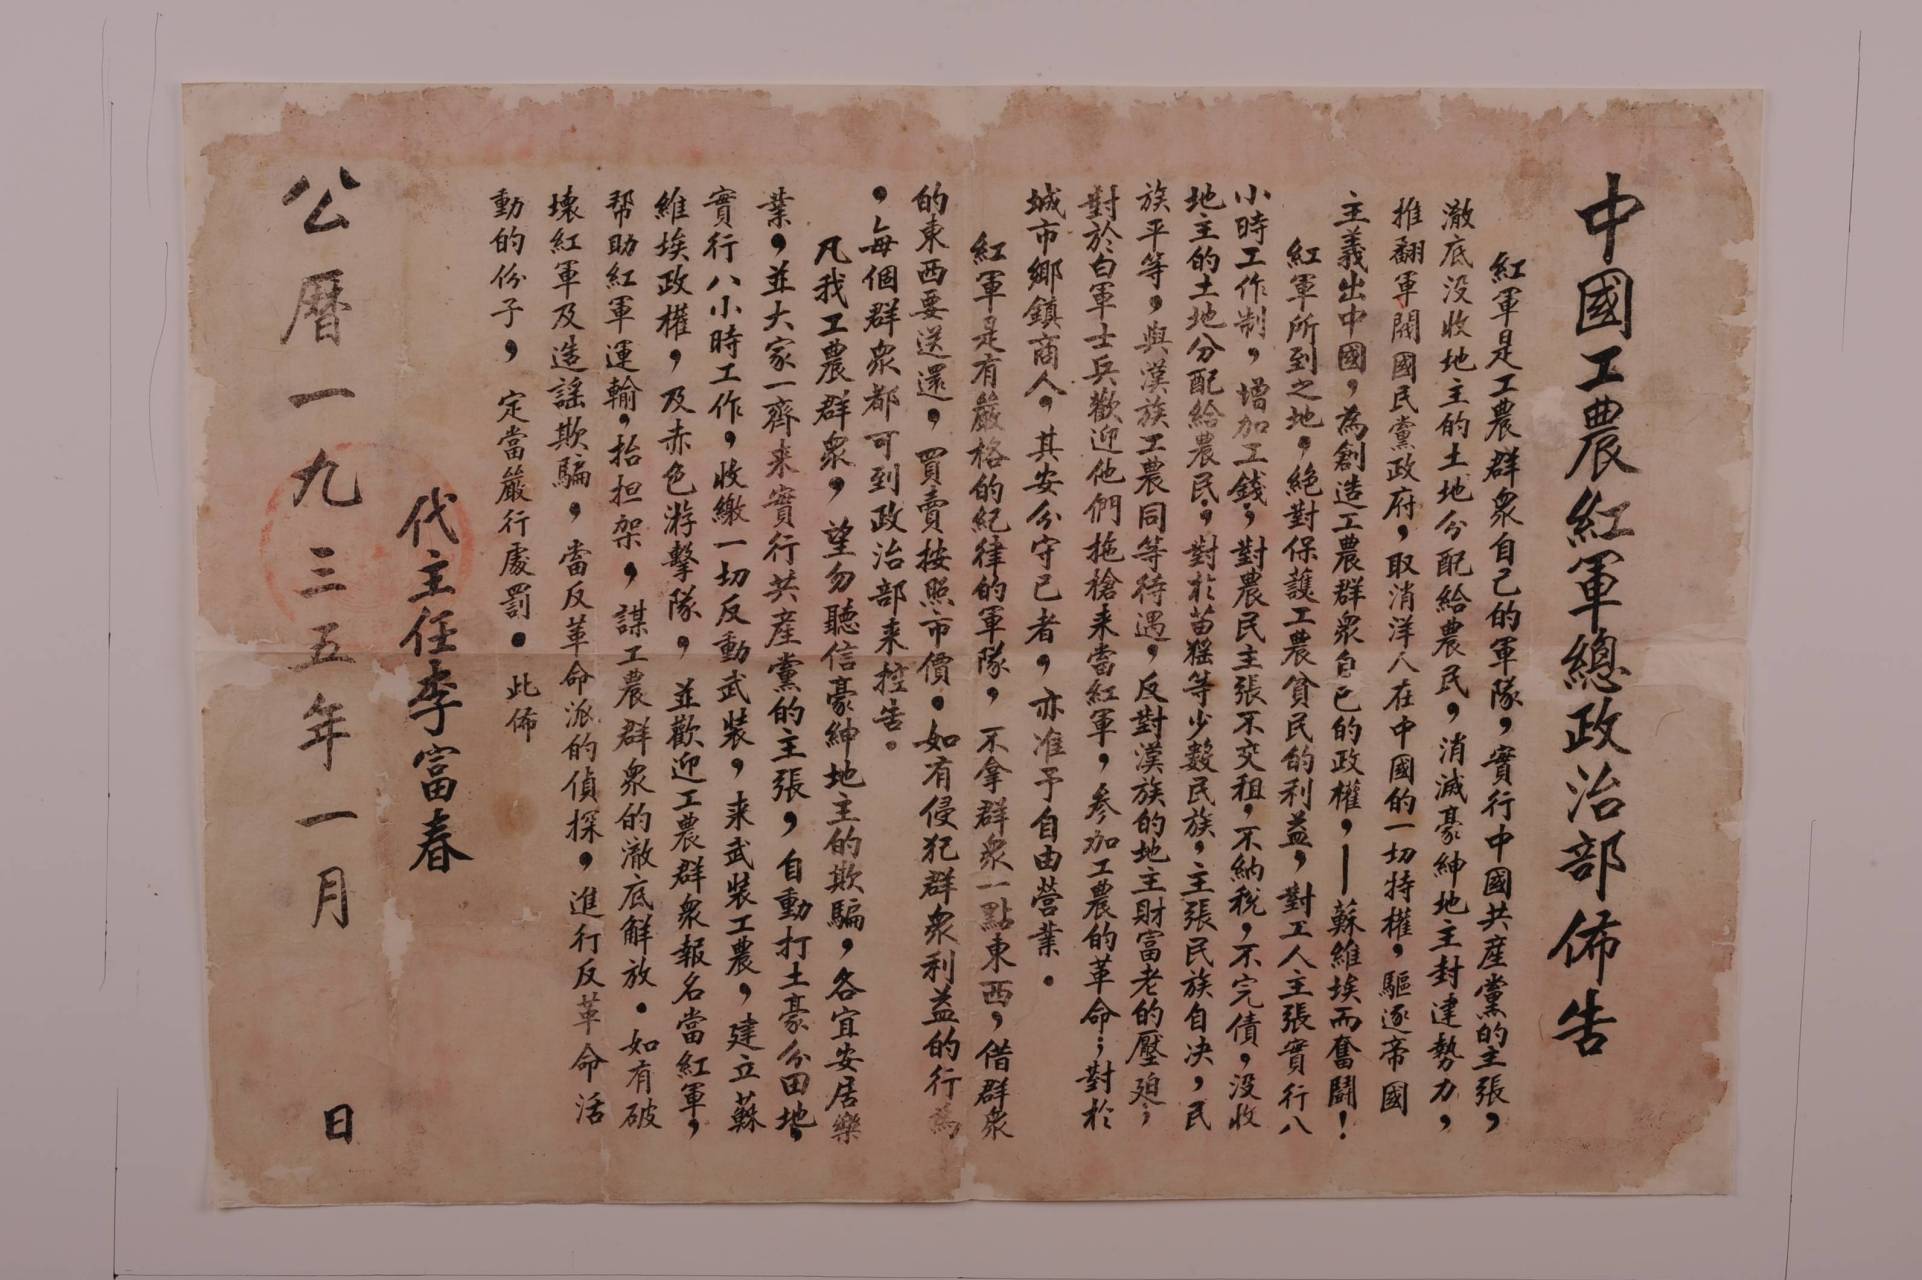 中國工農紅軍總政治部佈告
紅軍是工農群衆自己的軍隊，實行中國共産黨的主張，
澈底没收地主的土地分配給農民，消滅豪紳地主封建勢力，
推翻軍閥國民黨政府，取消洋人在中國的一切特權，驅逐帝國
主義出中國，為創造工農群衆自己的政權，—蘇維埃而奮鬪！
紅軍所到之地，絕對保護工農貧民的利益，對工人主張實行八
小時工作制，增加工錢，對農民主張不交租，不納稅，不完債，没收
地主的土地分配給農民，對於苗猺等少數民族，主張民族自决，民
族平等，與漢族工農同等待遇，反對漢族的地主財富老的壓廹；
對於白軍士兵歡迎他們拖槍来當紅軍，參加工農的革命；對於
城市鄉鎮商人，其安分守己者，亦准予自由營業．
紅軍是有嚴格的紀律的軍隊，不拿群衆一點東西，借群衆
的東西要送還，買賣按照市價．如有侵犯群衆利益的行為
，每個群衆都可到政治部来控告。
凡我工農群衆，望勿聽信豪紳地主的欺騙，各宜安居樂
業，並大家一齊来實行共産黨的主張，自動打土豪分田地，
實行八小時工作，收繳一切反動武裝，来武裝工農，建立蘇
維埃政權，及赤色游擊隊，，並歡迎工農群衆報名當紅軍，
帮助紅軍運輸，抬担架，謀工農群衆的澈底解放．如有破
壊紅軍及造謡欺騙，當反革命派的偵探，進行反革命活
動的份子，定當嚴行處罰．此佈
代主任李富春
公曆一九三五年一月 日